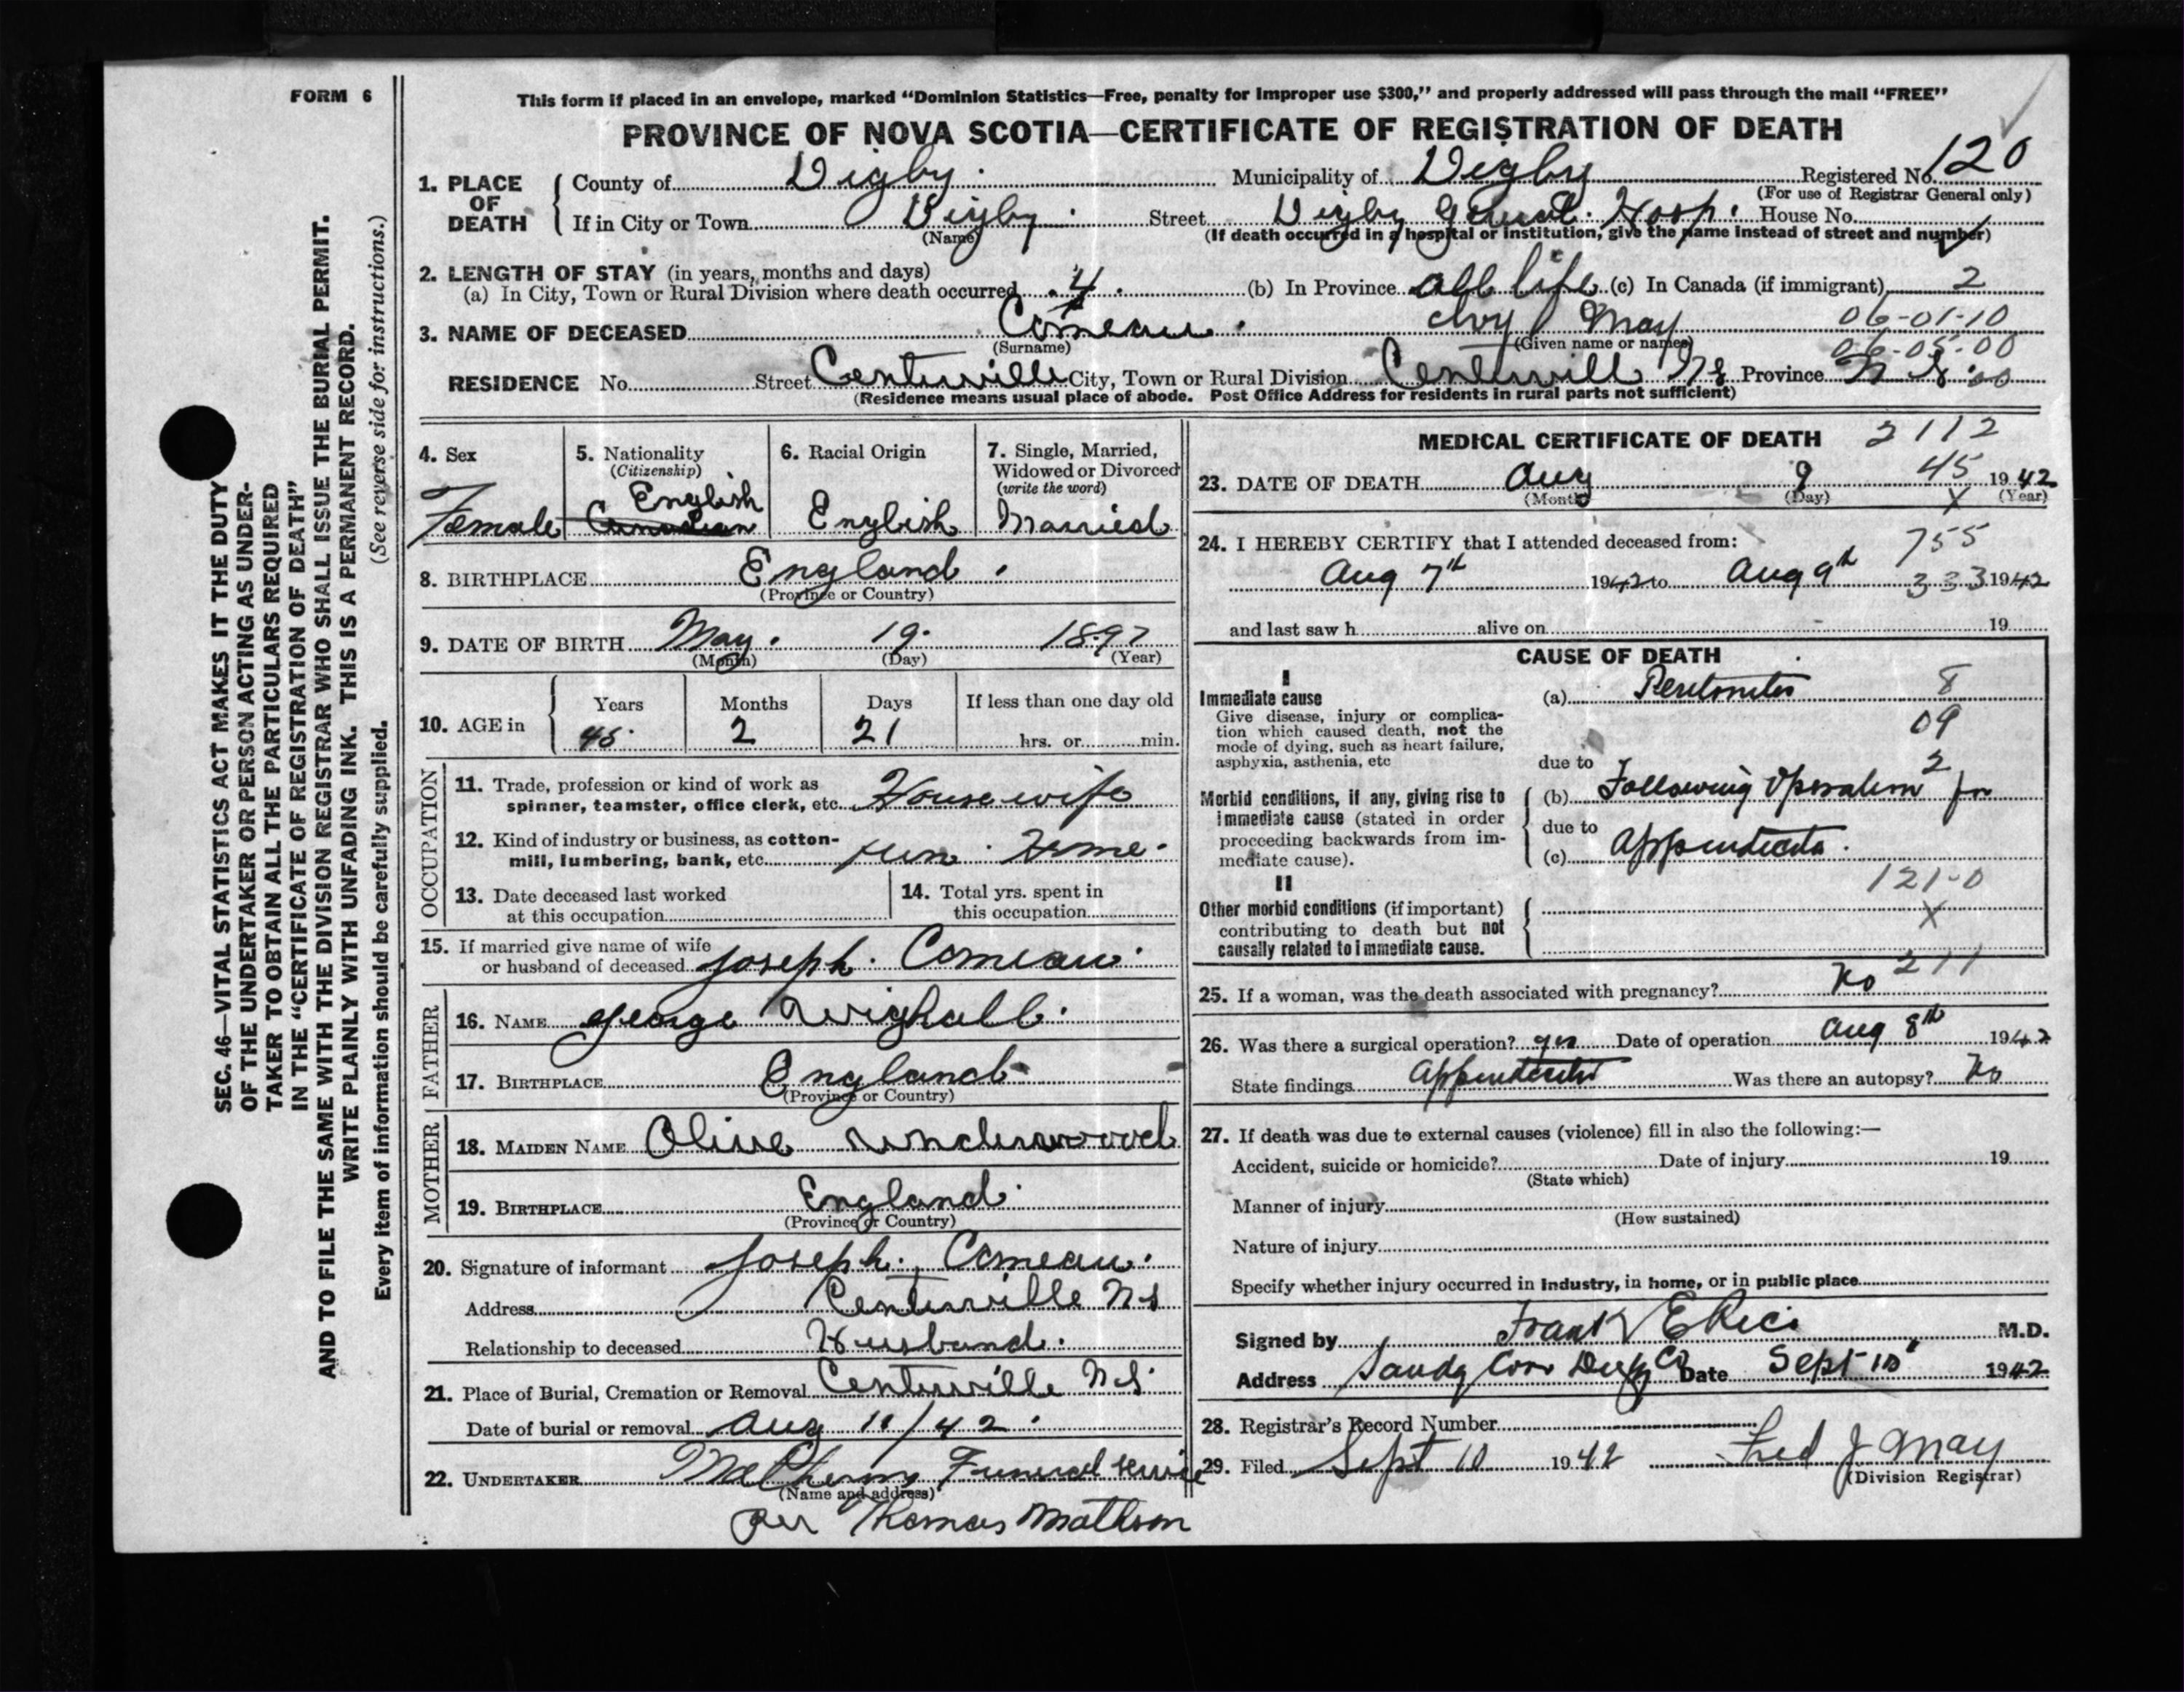 FORM 6
This form if placed in an envelope, marked “Dominion Statistics—Free, penalty for Improper use $300,” and properly addressed will pass through the mail “FREE”
PROVINCE OF NOVA SCOTIA—CERTIFICATE OF REGISTRATION OF DEATH
1. PLACE OF DEATH County of Digby Municipality of Digby Registered No. 120
(For use of Registrar General only)
If in City or Town Digby Street Digby General Hosp. House No.
(Name) (If death occurred in a hospital or institution, give the name instead of street and number)
2. LENGTH OF STAY (in years, months and days)
(a) In City, Town or Rural Division where death occurred 4 (b) In Province all life (c) In Canada (if immigrant) 2
3. NAME OF DECEASED Comeau Ivy May 06-01-10
(Surname) (Given name or names) 06-05-00
RESIDENCE No. Street Centerville City, Town or Rural Division Centervill NS Province N S. 00
(Residence means usual place of abode. Post Office Address for residents in rural parts not sufficient)
4. Sex Female
5. Nationality (Citizenship) English Canadian
6. Racial Origin English
7. Single, Married, Widowed or Divorced (write the word) Married
8. BIRTHPLACE England
(Province or Country)
9. DATE OF BIRTH May 19 1897
(Month) (Day) (Year)
10. AGE in Years 45 Months 2 Days 21 If less than one day old hrs. or min.
OCCUPATION
11. Trade, profession or kind of work as
spinner, teamster, office clerk, etc. House wife
12. Kind of industry or business, as cotton-
mill, lumbering, bank, etc. Home
13. Date deceased last worked
at this occupation
14. Total yrs. spent in
this occupation
15. If married give name of wife
or husband of deceased Joseph Comeau
FATHER
16. NAME George Wighall
17. BIRTHPLACE England
(Province or Country)
MOTHER
18. MAIDEN NAME Olive underwood
19. BIRTHPLACE England
(Province or Country)
20. Signature of informant Joseph Comeau
Address Centerville NS
Relationship to deceased Husband
21. Place of Burial, Cremation or Removal Centerville NS
Date of burial or removal Aug 11/42
22. UNDERTAKER Funeral service
(Name and address)
per Thomas Mathson
MEDICAL CERTIFICATE OF DEATH 2112
23. DATE OF DEATH Aug 9 45 1942
(Month) (Day) X (Year)
24. I HEREBY CERTIFY that I attended deceased from: 755
Aug 7th 1942 to Aug 9th 333 1942
and last saw h alive on 19
CAUSE OF DEATH
I
Immediate cause (a) Peritonitis 8
Give disease, injury or complica-
tion which caused death, not the
mode of dying, such as heart failure,
asphyxia, asthenia, etc
09
due to
Morbid conditions, if any, giving rise to
immediate cause (stated in order
proceeding backwards from im-
mediate cause).
(b) Following Operation 2 for
due to
(c) Appendicitis.
121-0
II
Other morbid conditions (if important)
contributing to death but not
causally related to immediate cause.
X
211
25. If a woman, was the death associated with pregnancy? No
26. Was there a surgical operation? yes Date of operation Aug 8th 1942
State findings Appendicitis Was there an autopsy? No
27. If death was due to external causes (violence) fill in also the following:—
Accident, suicide or homicide? Date of injury 19
(State which)
Manner of injury
(How sustained)
Nature of injury
Specify whether injury occurred in industry, in home, or in public place
Signed by Frank E Rice M.D.
Address Sandy Cove Digby Co Date Sept 10 1942
28. Registrar's Record Number
29. Filed Sept 10 1942 Fred J May
(Division Registrar)
SEC. 46—VITAL STATISTICS ACT MAKES IT THE DUTY
OF THE UNDERTAKER OR PERSON ACTING AS UNDER-
TAKER TO OBTAIN ALL THE PARTICULARS REQUIRED
IN THE “CERTIFICATE OF REGISTRATION OF DEATH”
AND TO FILE THE SAME WITH THE DIVISION REGISTRAR WHO SHALL ISSUE THE BURIAL PERMIT.
WRITE PLAINLY WITH UNFADING INK. THIS IS A PERMANENT RECORD.
Every item of information should be carefully supplied. (See reverse side for instructions.)